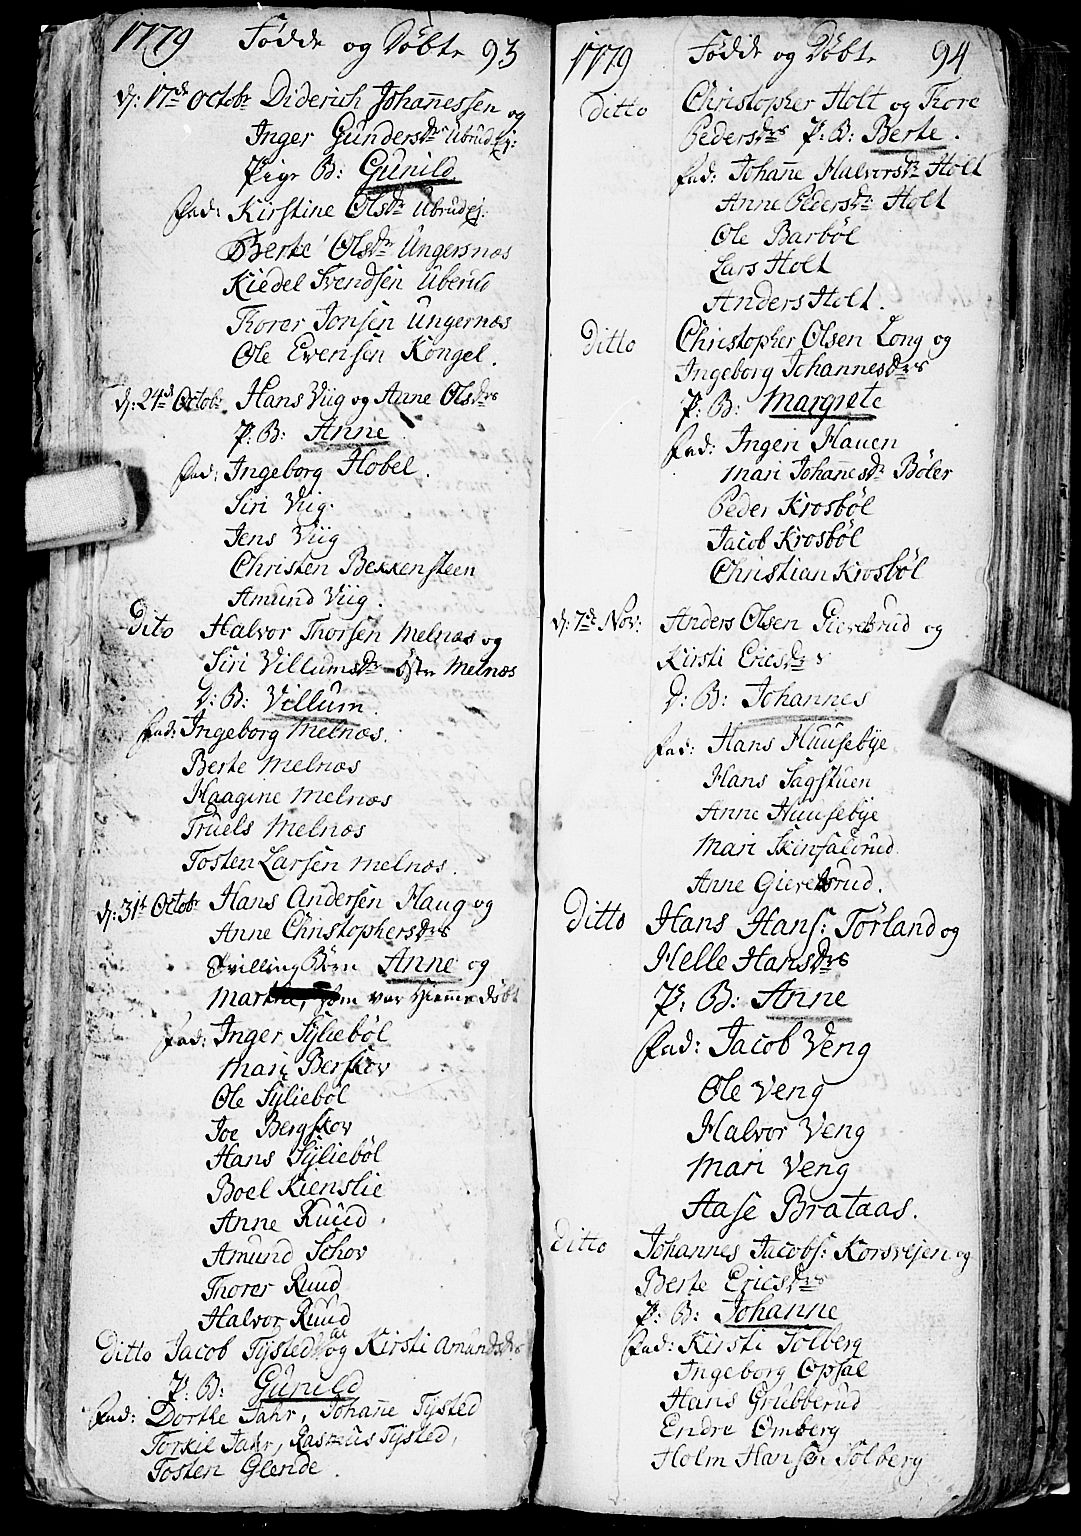 1779 Fødde og Døbte 93
d: 17de Octobr Diderich Johannessen og
Inger Gundersdr Ubrudej:
Pige B: Gunild
Fad: Kirstine Olsdr Ubrudej:
Berte Olsdr Ungersnæs
Kiedel Svendsen Uberud
Thorer Jonsen Ungernæs
Ole Evensen Kongel.
d: 24de Octobr Hans Viig og Anne Olsdrs
P: B: Anne
Fad: Ingeborg Hobel.
Siri Viig.
Jens Viig
Christen Bekkensteen
Amund Viig.
Dito Halvor Thorsen Melnæs og
Siri Villumsdr Melnæs
D: B: Villum.
Fad: Ingeborg Melnæs.
Berte Melnæs
Haagine Melnæs
Truels Melnæs
Tosten Larsen Melnæs.
d: 31te Octobr Hans Andersen Haug og
Anne Christophersdrs
Tvilling Børn Anne og
Marthe, som var Hiemme døbt
Fad: Inger Syliebøl
Mari Berskov
Ole Syliebøl
Joe Bergskov
Hans Syliebøl
Boel Kienslie
Anne Ruud.
Amund Schov
Thorer Ruud
Halvor Ruud
Ditto Jacob Tysted og Kirsti Amundsdrs
P: B: Gunild
Fad: Dorthe Jahr, Johane Tysted
Torkil Jahr, Rasmus Tysted,
Tosten Glende.
1779 Fødde og Døbte 94
ditto Christopher Holt og Thore
Pedersdrs P: B: Berte.
Fad: Johane Halversdr Holt
Anne Pedersdr Holt
Ole Barbøl
Lars Holt
Anders Holt.
Ditto Christopher Olsen Long og
Ingeborg Johannesdrs
P: B: Margrete
Fad: Ingeri Hauen
Mari Johanesdr Bøler
Peder Krosbøl
Jacob Krosbøl
Christian Krosbøl
d: 7de Nov: Anders Olsen Gieretsrud og
Kirsti Ericsdrs
D: B: Johannes
Fad: Hans Huusebye
Hans Sagstuen
Anne Huusebye
Mari Skinsalerud.
Anne Gieretsrud.
Ditto Hans Hans: Tørland og
Helle Hansdrs
P: B: Anne
Fad: Jacob Veng
Ole Veng
Halvor Veng
Mari Veng
Aase Brataas.
Ditto Johannes Jacobs: Korsvejen og
Berte Ericsdrs
P: B: Johanne
Fad: Kirsti Solberg
Ingeborg Opsal
Hans Grubberud
Endre Omberg
Holm Hansen Solberg